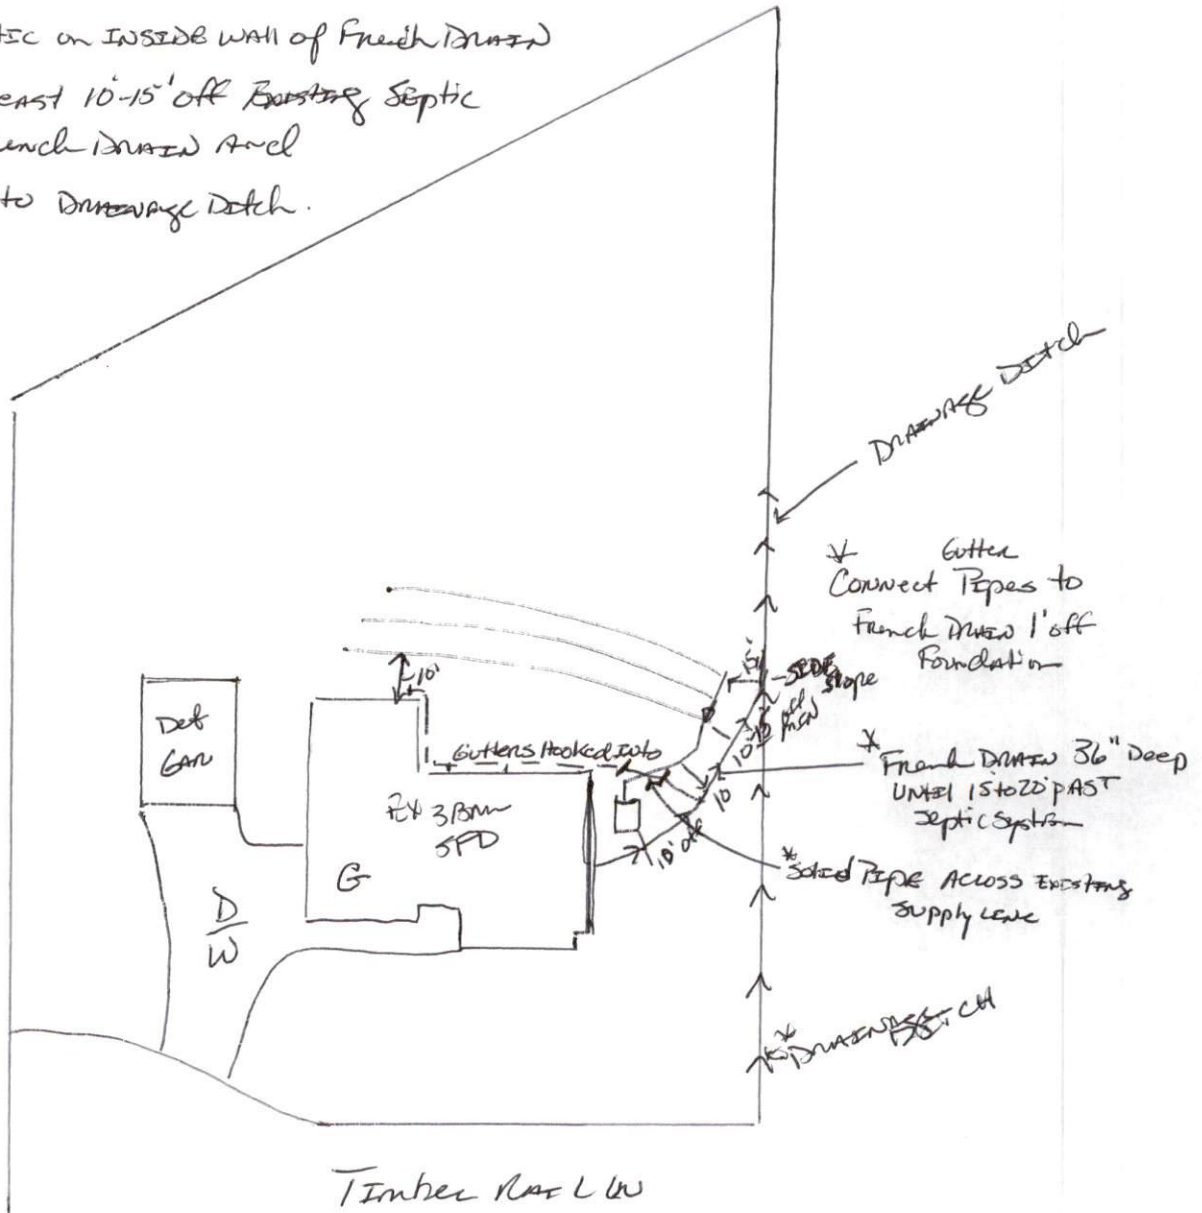 TIC on INSIDE WAll of French DRAIN
EAST 10'-15' off Existing Septic
ench DRAIN And
to DRAINAge Ditch.
DRAINAge Ditch
* Gutter
Connect Pipes to
French DRAIN 1' off
Foundation
10'
SIDE
Slope
Det
GAR
Gutters Hooked Into
* French DRAIN 36" Deep
UNtil 15 to 20' pAST
Septic System
EX 3 BRM
SFD
10'
10' off
G
* Solid Pipe ACROSS EXISTING
Supply Line
D
W
* DRAINAGE DITCH
Timber RAIL LN